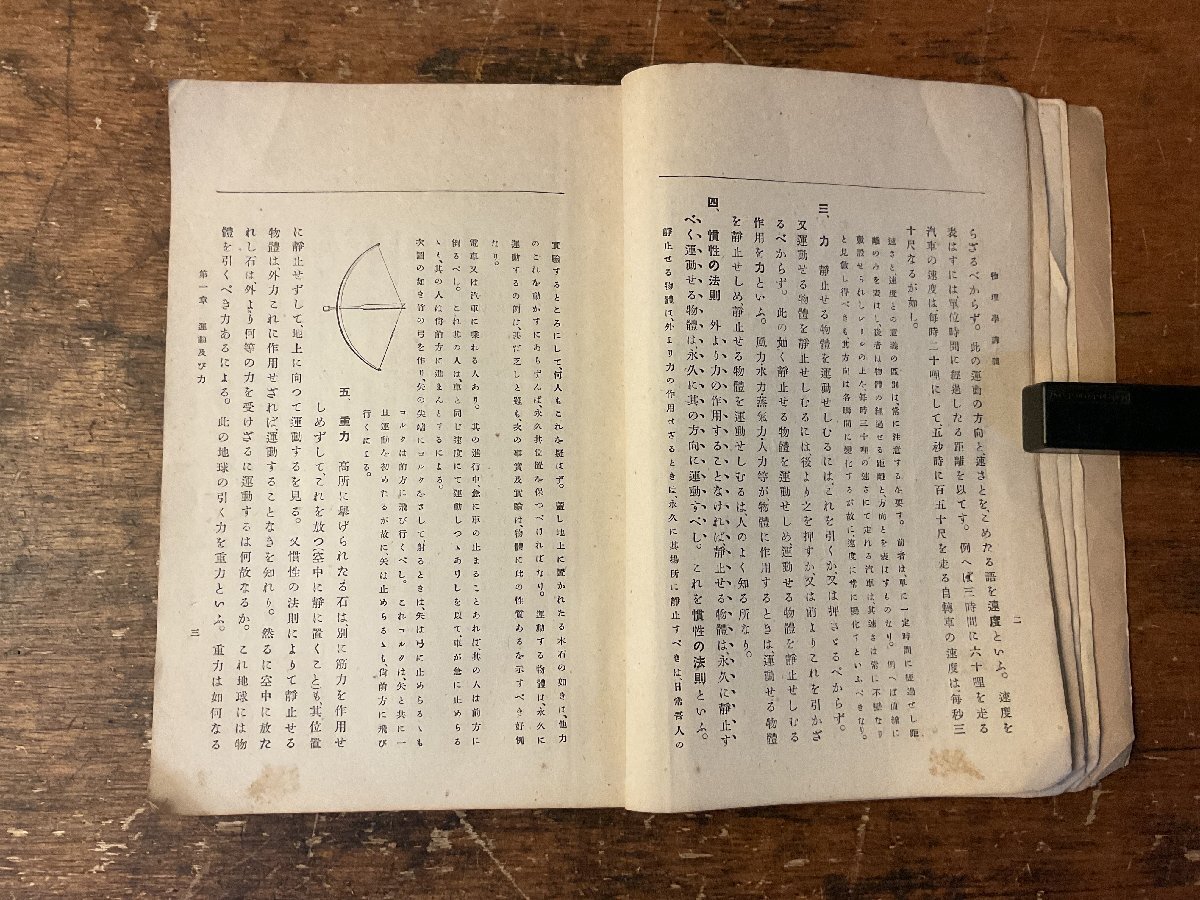 物理學講話
二
らざるべからず。此の運動の方向と、速さとを、こめたる語を速度といふ。速度を
表はすには單位時間に經過したる距離を以てす。例へば三時間に六十哩を走る
汽車の速度は毎時二十哩にして、五秒時に百五十尺を走る自轉車の速度は、毎秒三
十尺なるが如し。
速さと速度との意義の區別は常に注意するを要す。前者は、單に一定時間に經過せし距
離のみを表はし、後者は物體の經過せる距離と、方向とを表はすものなり。例へば直線に
敷設せられしレールの上を毎時二十哩の速さにて走れる汽車は其速さは常に不變なり
と見做し得べきも其方向は各瞬間に變化するが故に速度は常に變化すといふべきなり。
三、力 靜止せる物體を運動せしむるには、これを引くか又は押さざるべからず。
又運動せる物體を靜止せしむるには後より之を押すか又は前よりこれを引かざ
るべからず。此の如く靜止せる物體を運動せしめ運動せる物體を靜止せしむる
作用を力といふ。風力水力蒸氣力人力等が物體に作用するときは、運動せる物體
を靜止せしめ靜止せる物體を運動せしむるは、人のよく知る所なり。
四、慣性の法則 外より力の作用することなければ靜止せる物體は、永久に靜止す
べく運動せる物體は、永久に其の方向に運動すべし。これを慣性の法則といふ。
靜止せる物體は、外より力の作用せざるときは、永久に其場所に靜止すべきは、日常吾人の
實驗するところにして、何人もこれを疑はず。蓋し地上に置かれたる木石の如きは、他力
のこれを動かすにあらずんば永久其位置を保つべければなり。運動する物體は、永久に
運動するの例は、甚だ乏しと雖も次の事實及實驗は、物體に此の性質あるを示すべき好例
なり。
電車又は汽車に乘れる人あり。其の進行中急に車の止まることあれば其の人は前方に
倒るべし。これ其の人は、車と同じ速度にて運動しつゝありしを以て、車が急に止めらる
ゝも、其の人は尙前方に進まんとするによる。
次圖の如き竹の弓を作り、矢の尖端にコルクをさして射るときは、矢は弓に止めらるゝも
コルクは前方に飛び行くべし。これコルクは、矢と共に一
旦運動を初めたるが故に、矢は止めらるゝも尙前方に飛び
行くによる。
五、重力 高所に擧げられたる石は、別に筋力を作用せ
しめずして、これを放つ空中に靜に置くことも、其位置
に靜止せずして、地上に向つて運動するを見る。又慣性の法則によりて靜止せる
物體は外力これに作用せざれば運動することなきを知れり。然るに空中に放た
れし石は、外より何等の力を受けざるに運動するは何故なるか。これ地球には物
體を引くべき力あるによる。此の地球の引く力を重力といふ。重力は如何なる
第一章 運動及び力
三